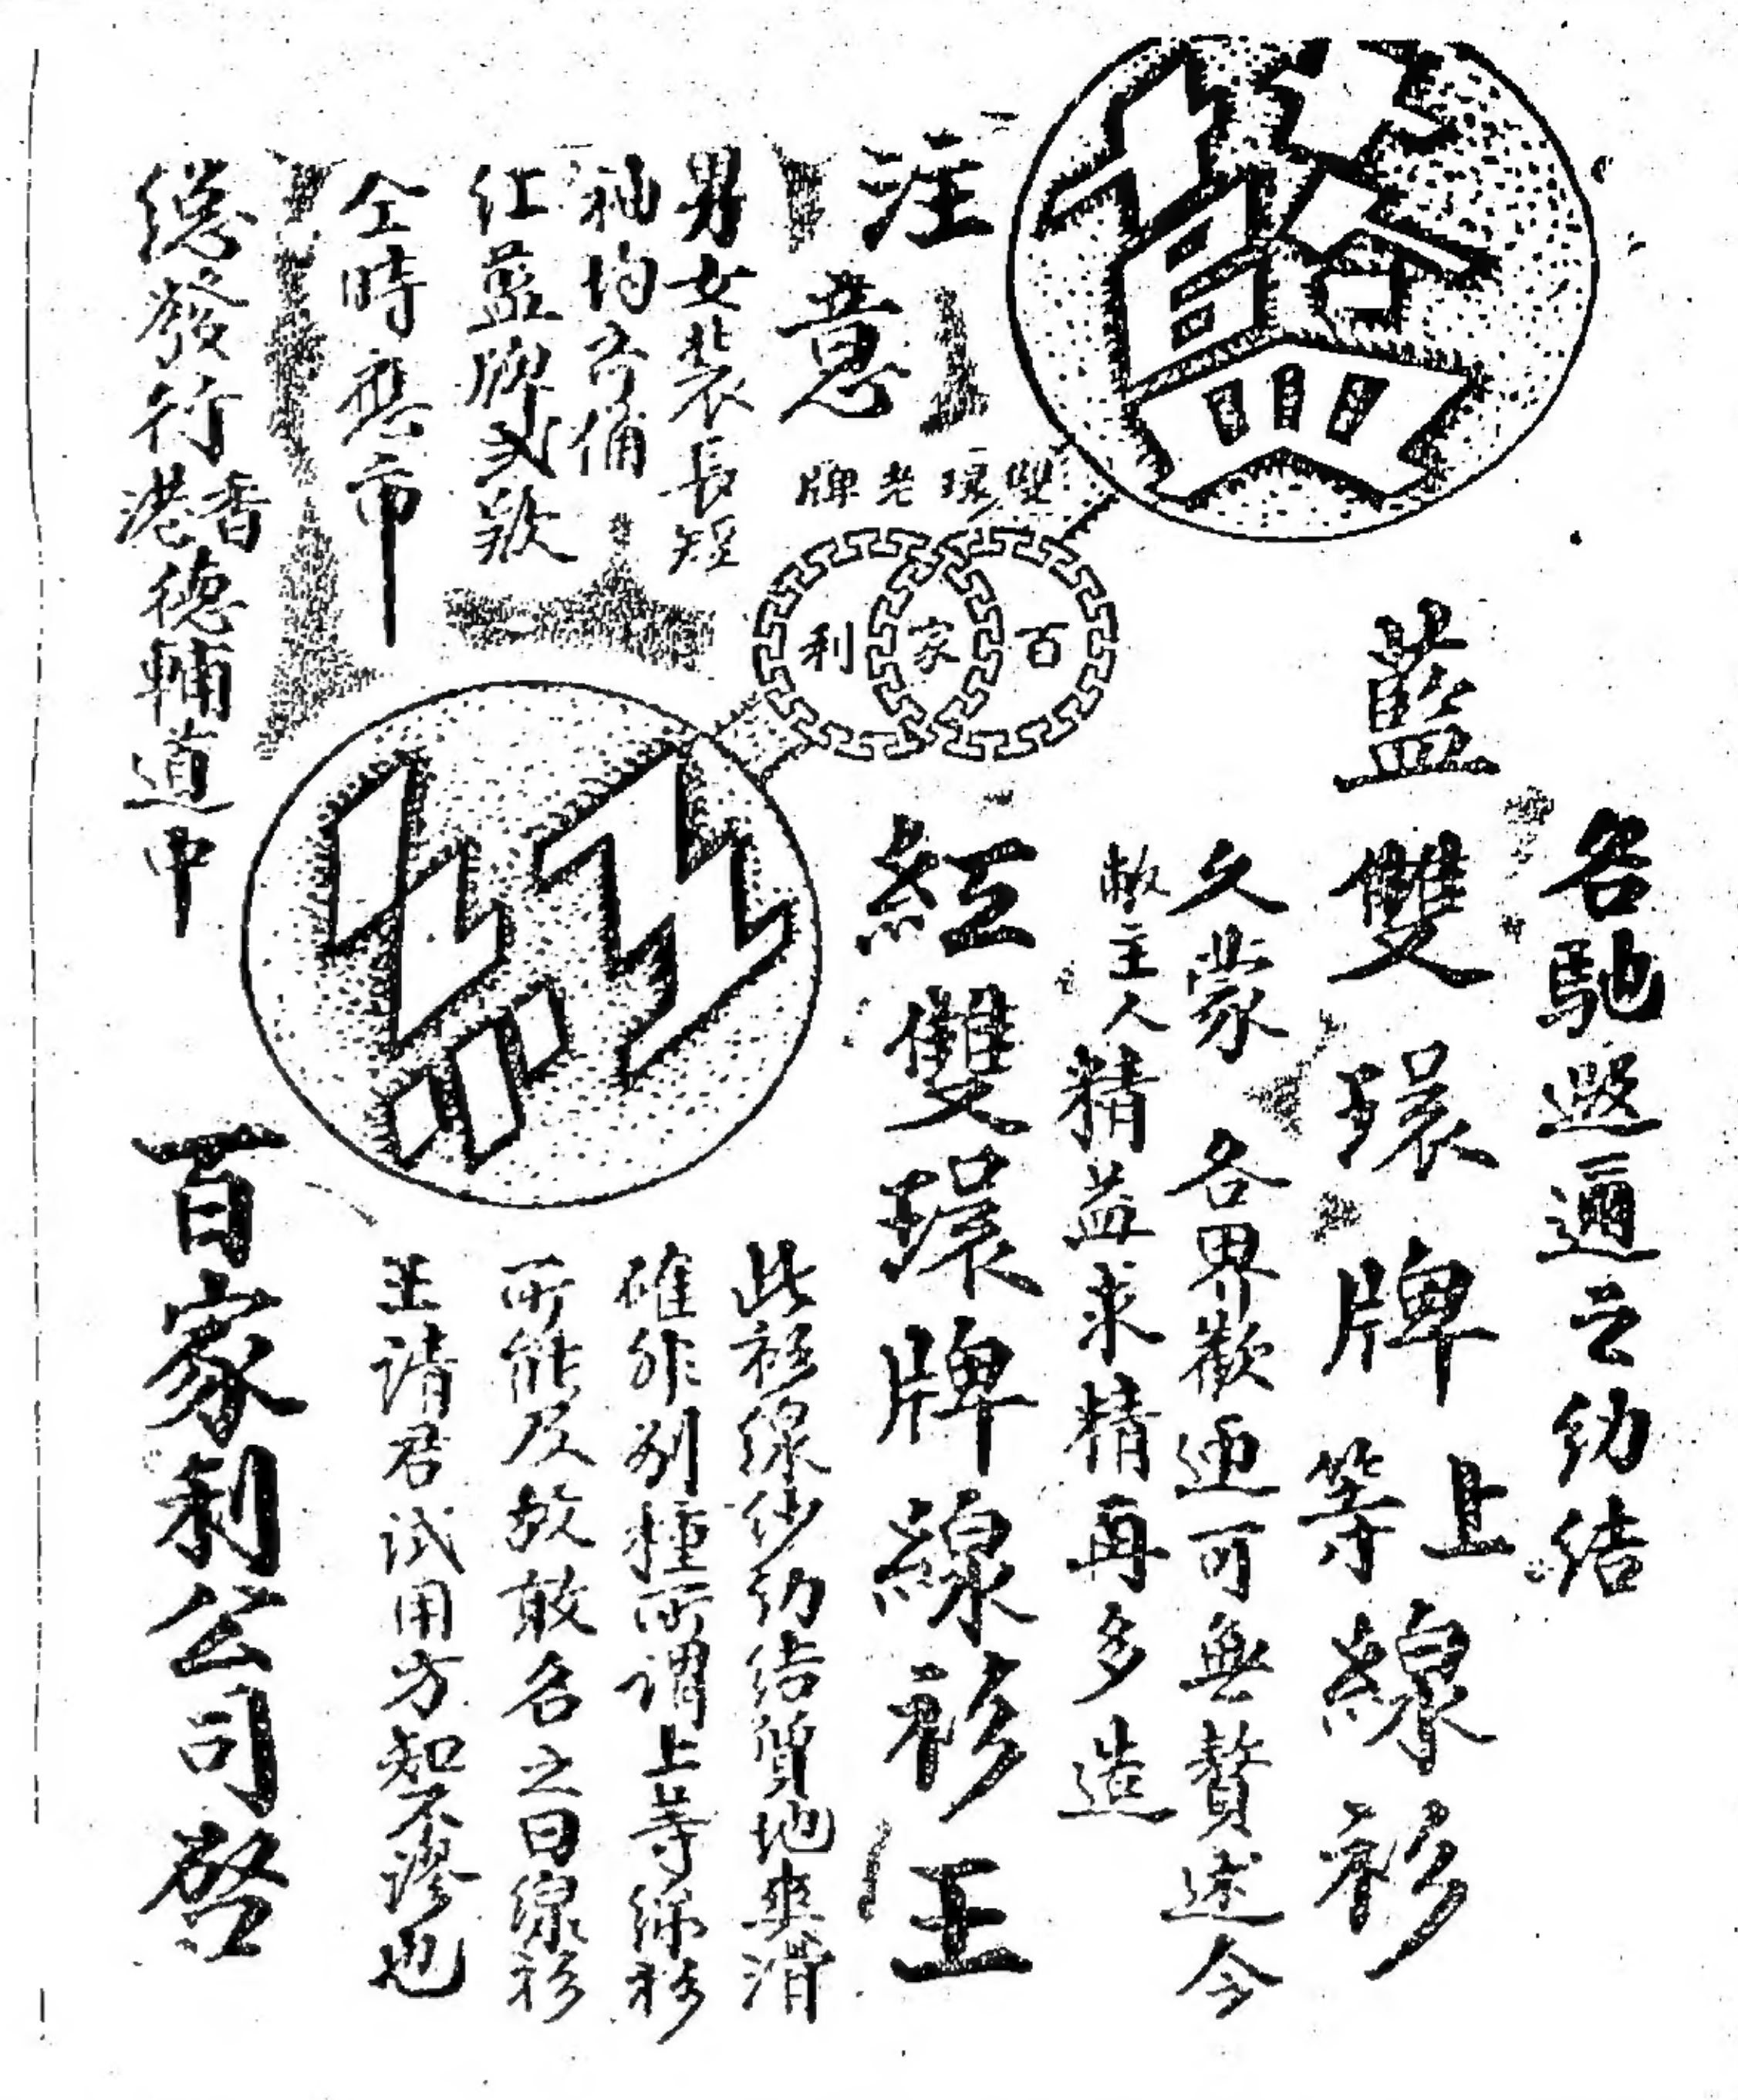 藍
名馳遐邇之幼結
藍雙環牌上等線衫
久蒙 各界歡迎可無贅述今
敝主人精益求精再多造
紅雙環牌線衫王
此衫線紗幼結質地爽滑
確非别種所謂上等線衫
所能及故敢名之曰線衫
王請君試用方知不謬也
雙環老牌
百家利
紅
注意
男女裝長短
袖均齊備
紅藍牌弍款
仝時應市
總發行香港德輔道中
百家利公司啓